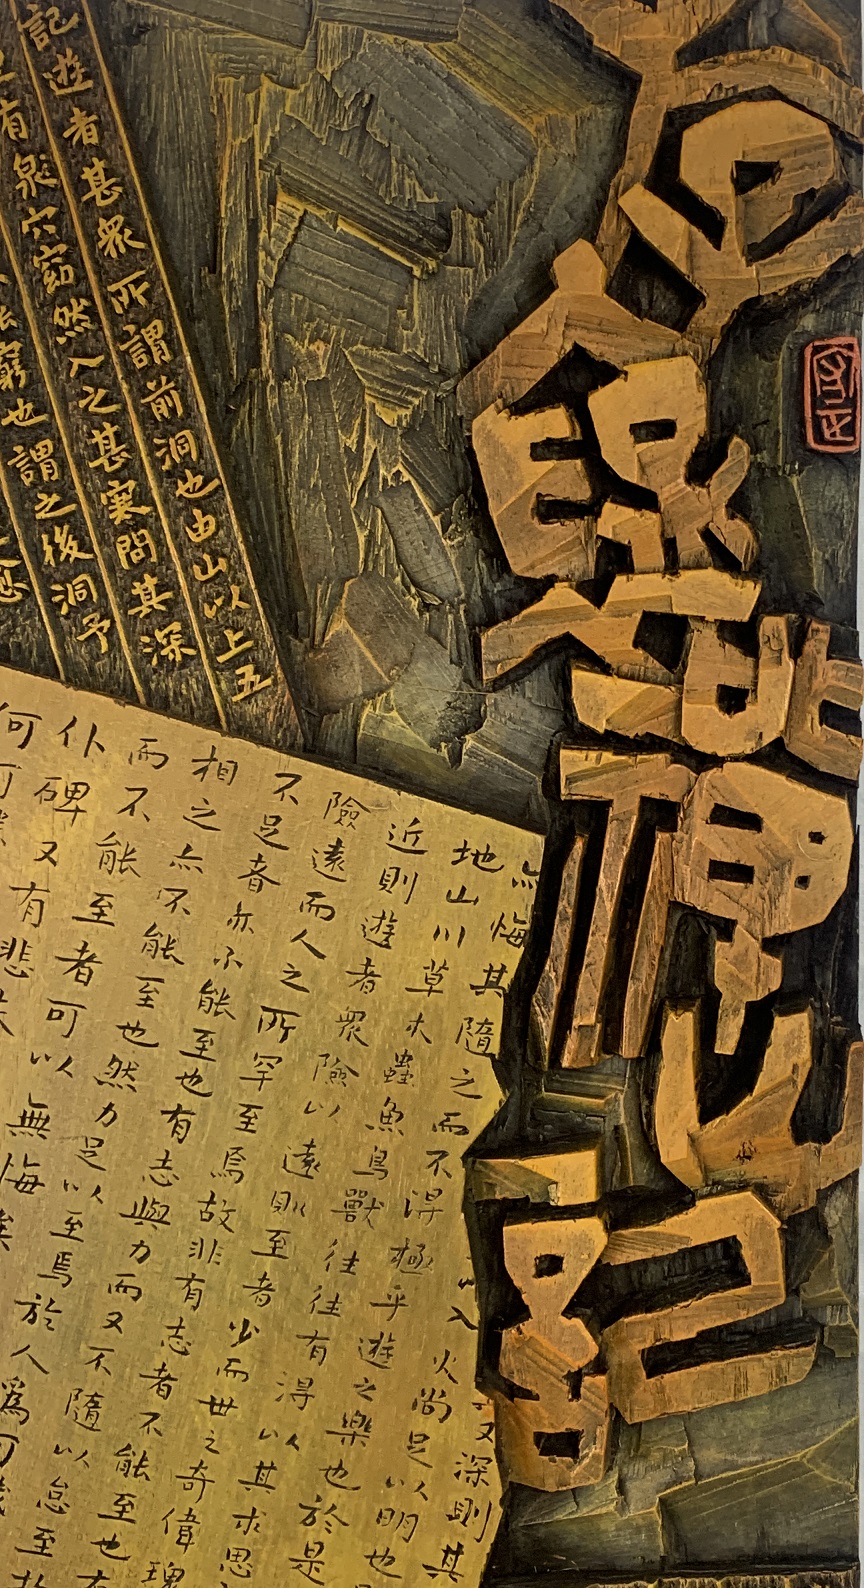 禪山記
記遊者甚眾所謂前洞也由山以上五
有泉穴窈然入之甚寒問其深
窮也謂之後洞予
怠
又深則其
入火尚足以明也
亦悔其隨之而不得極乎遊之樂也於是
地山川草木蟲魚鳥獸往往有得以其求思
近則遊者眾險以遠則至者少而世之奇偉瑰
險遠而人之所罕至焉故非有志者不能至也有
不足者亦不能至也有志與力而又不隨以怠至
相之亦不能至也然力足以至焉於人為可
而不能至者可以無悔矣
仆碑又有悲夫
何可